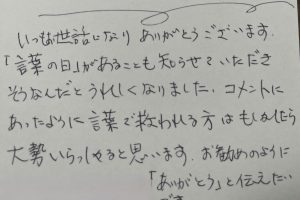 いつもお世話になり ありがとうございます.
「言葉の日」があることも知らせていただき
そうなんだとうれしくなりました. コメントに
あったように言葉で救われる方はもしかしたら
大勢いらっしゃると思います. お勧めのように
「ありがとう」と伝えたい